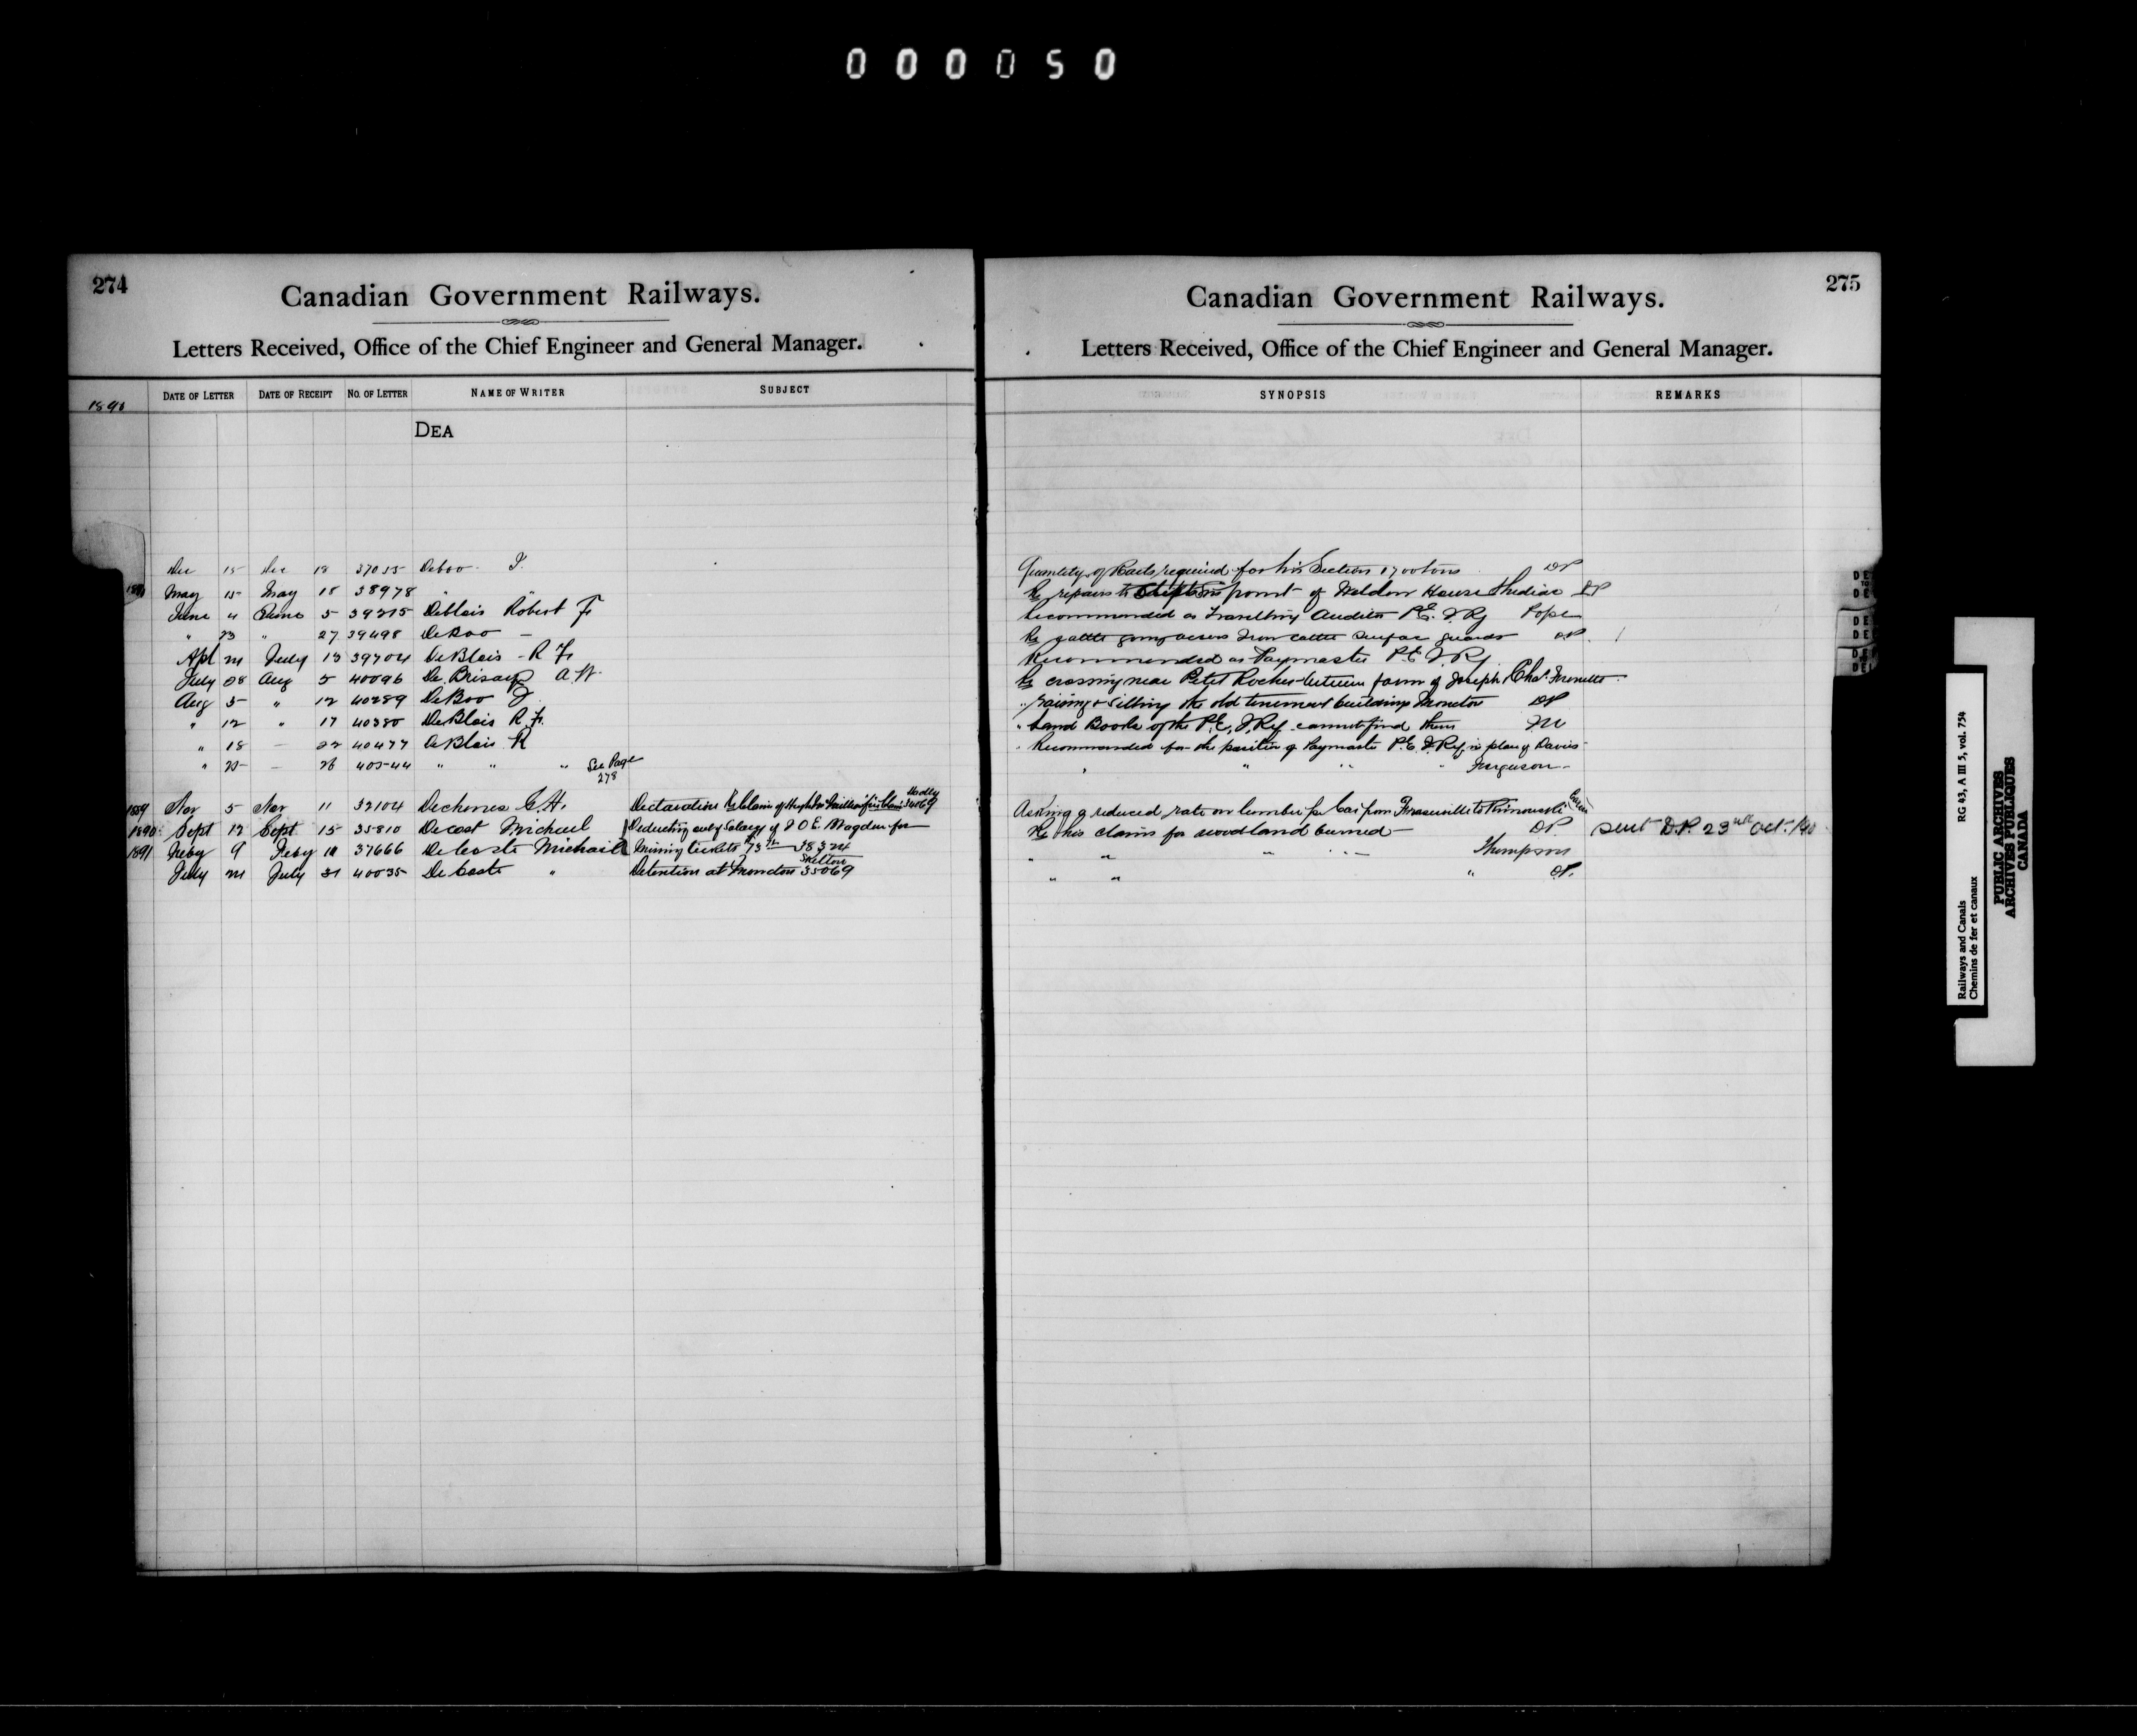 000050
274
Canadian Government Railways.
Letters Received, Office of the Chief Engineer and General Manager.
DATE OF LETTER DATE OF RECEIPT NO. OF LETTER NAME OF WRITER SUBJECT
1890
DEA
Dec 15 Dec 18 37055 Deboo J.
1891 May 15 May 18 38978 " "
June 4 June 5 39275 Deblois Robert F
" 23 " 27 39498 DeBoo —
Apl 21 July 13 39704 DeBlois - R F
July 28 Aug 5 40096 De Brisay A. W.
Aug 5 " 12 40289 DeBoo J
" 12 " 17 40380 DeBlois R. F.
" 18 — 22 40477 DeBlois R
" 25 — 26 40544 " " " See Page 278
1889 Nov 5 Nov 11 32104 Dechenes C. H. Declaration Re Claim of 34069
1890 Sept 12 Sept 15 35810 Decost Michael Deducting out of Salary of J O E. Magden for
1891 Feby 9 Feby 11 37666 DeCoste Michael Missing tickets 38324
July 21 July 31 40035 DeCoste " Detention at Moncton Skelton 35069
275
Canadian Government Railways.
Letters Received, Office of the Chief Engineer and General Manager.
SYNOPSIS REMARKS
Quantity of Rails required for his Section 1700 tons DP
Re repairs to front of Weldon House Shediac DP
Recommended as Travelling Auditor P.E.I Ry Pope
Re cattle going across Iron cattle guards DP.
Recommended as Paymaster P.E.I Ry
Re crossing near Petit Rocher between farm of Joseph & Chas.
" raising & silling the old tenement buildings Moncton DP
" Land Books of the P.E.I. Ry cannot find them
" Recommended for the position of Paymaster P.E.I Ry in place of Davies
" " " " Ferguson -
Asking a reduced rate on lumber per Car from Fraserville to Rimouski
Re his claim for woodland burned — DP sent D.P. 23rd Oct. /90
" " " " Thompson
" " " DP.
Railways and Canals
Chemins de fer et canaux
RG 43, A III 5, vol. 754
PUBLIC ARCHIVES
ARCHIVES PUBLIQUES
CANADA